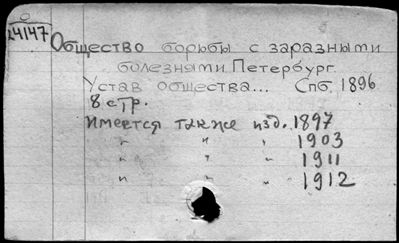 24147
Общество борьбы с заразными
болезнями. Петербург.
Устав общества... Спб, 1896
8 стр.
Имеется также изд. 1897
" " " 1903
" " " 1911
" " " 1912